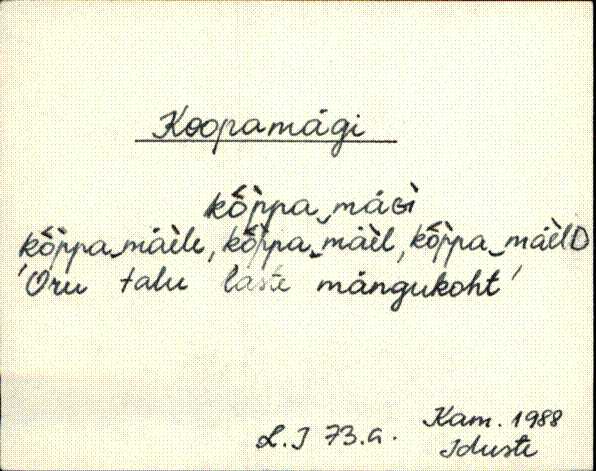 Koopamägi
kȭ̀ppa‿mäɢì
kȭ̀ppa‿mäèle, kȭ̀ppa‿mäèl, kȭ̀ppa‿mäèlD
'Oru talu laste mängukoht'
L.J 73.a. Kam. 1988
Iduste